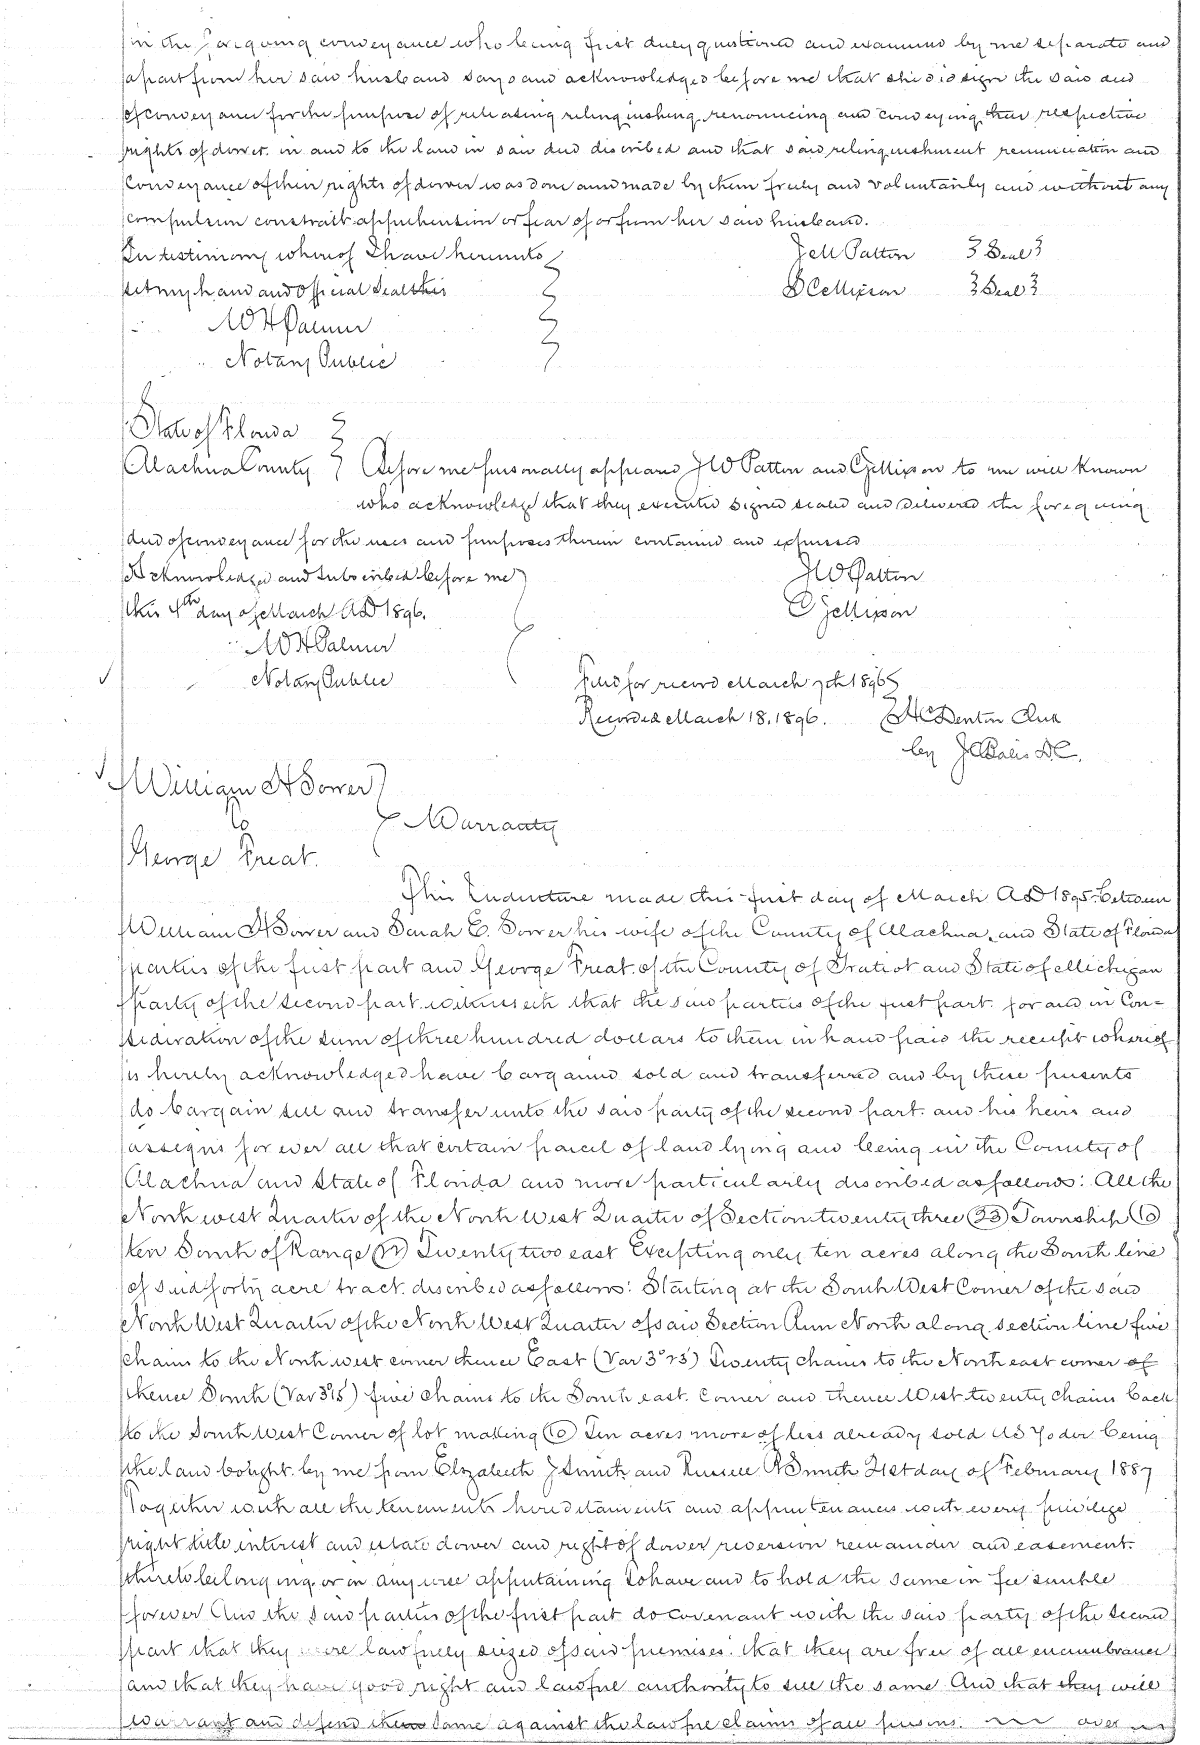 in the foregoing conveyance who being first duly questioned and examined by me separate and
apart from her said husband says and acknowledged before me that she did sign the said deed
of conveyance for the purpose of releasing relinquishing renouncing and conveying their respective
rights of dower. in and to the land in said deed discribed and that said relinquishment renunciation and
conveyance of their rights of dower was done and made by them freely and voluntarily and without any
compulsion constrait apprehension or fear of or from her said husband.
In testimony whereof I have hereunto
Jell Patton Seal
set my hand and official seal this
D C Mixson Seal
W H Palmer
Notary Public
State of Florida
Alachua County Before me personally appeared J W Patton and C J Mixson to me well known
who acknowledge that they executed signed sealed and delivered the foregoing
deed of conveyance for the uses and purposes therein contained and expressed
Acknowledged and subscribed before me
J W Patton
this 4th day of March A D 1896.
C J Mixson
W H Palmer
Notary Public
Filed for record March 7th 1896
Recorded March 18, 1896. H C Denton Clk
by D.C.
William H Sower
to Warranty
George Treat.
This Indenture made this first day of March A D 1895. between
William H Sower and Sarah E. Sower his wife of the County of Alachua, and State of Florida
parties of the first part and George Treat. of the County of Gratiot and State of Michigan
party of the second part. witnesseth that the said parties of the first part. for and in Con-
sideration of the sum of three hundred dollars to them in hand paid the receipt whereof
is hereby acknowledged have bargained sold and transferred and by these presents
do bargain sell and transfer unto the said party of the second part. and his heirs and
assigns for ever all that certain parcel of land lying and being in the County of
Alachua and State of Florida and more particularly discribed as follows: All the
North west Quarter of the North West Quarter of Section twenty three (23) Township (10)
ten South of Range (22) Twenty two east Excepting only ten acres along the South line
of said forty acre tract. discribed as follows: Starting at the South West Corner of the said
North West Quarter of the North West Quarter of said Section Run North along section line five
chains to the North west corner thence East (Var 3°25') Twenty chains to the North east corner of
thence South (Var 3°15') five chains to the South east. corner and thence West twenty chains back
to the South West Corner of lot making (10) Ten acres more of less already sold U S Yoder being
the land bought. by me from Elizabeth J Smith and Russell R Smith 21st day of February 1887
Together with all the tenements hereditaments and appurtenances with every privilege
right title interest and estate dower and right of dower reversion remainder and easement.
thereto belonging or in anywise appertaining To have and to hold the same in fee simple
forever And the said parties of the first part do covenant with the said party of the second
part that they were lawfully siezed of said premises that they are free of all encumbrances
and that they have good right and lawful authority to sell the same And that they will
warrant and defend them same against the lawful claims of all persons. over